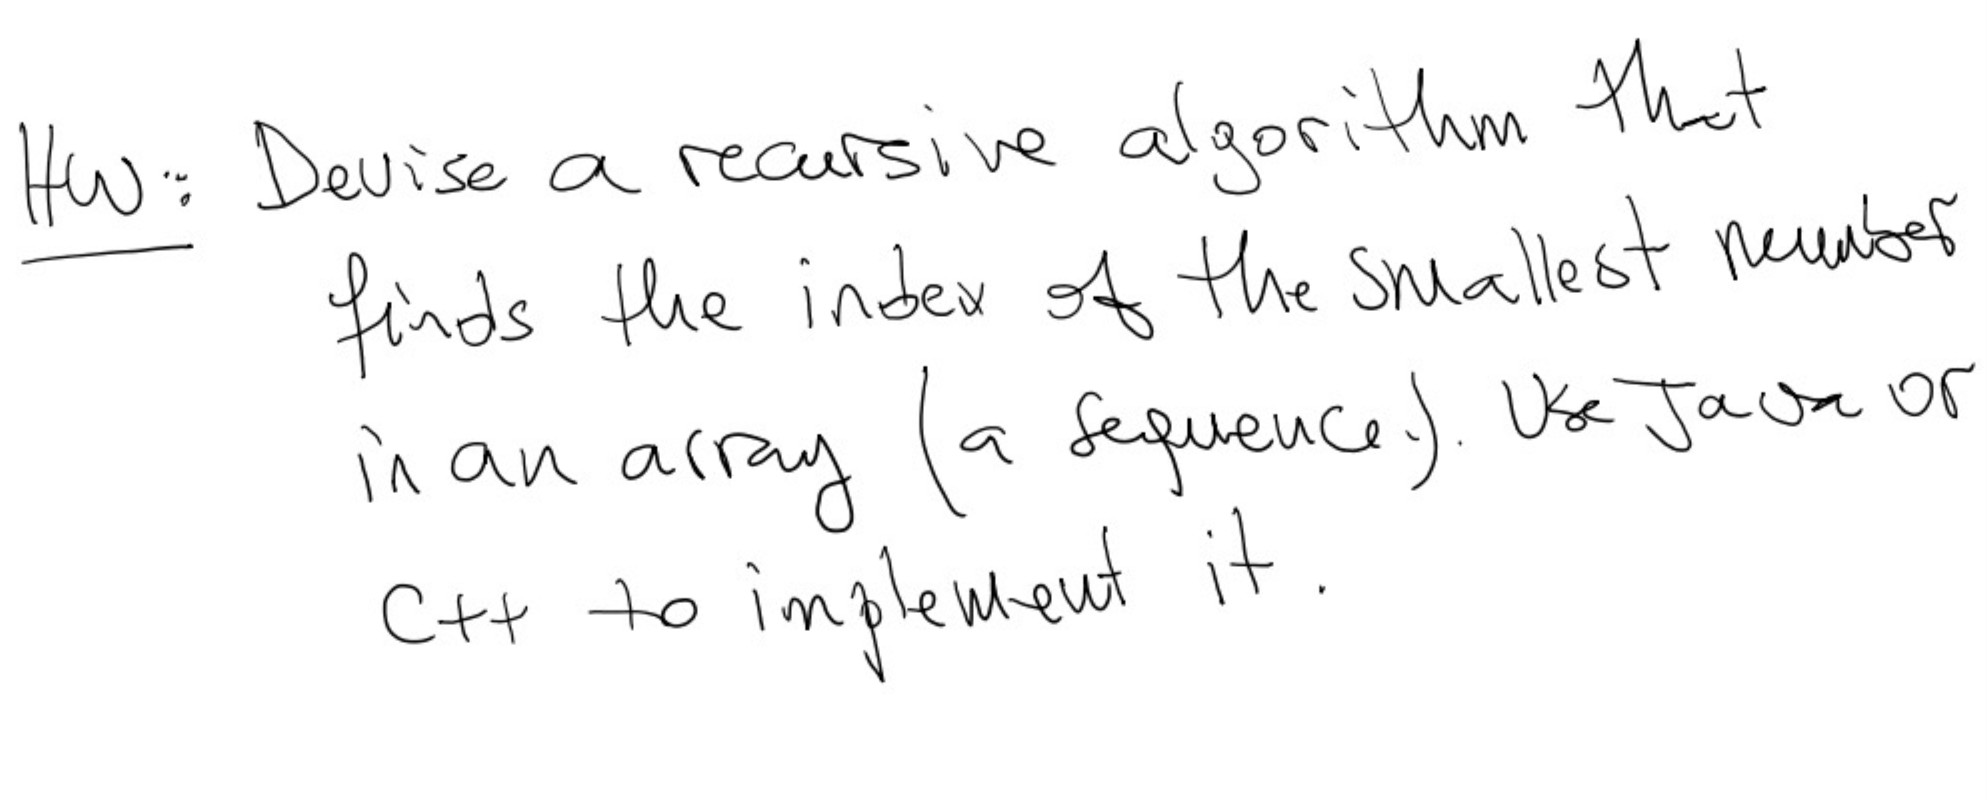 HW: Devise a recursive algorithm that
finds the index of the smallest number
in an array (a sequence). Use Java or
C++ to implement it.